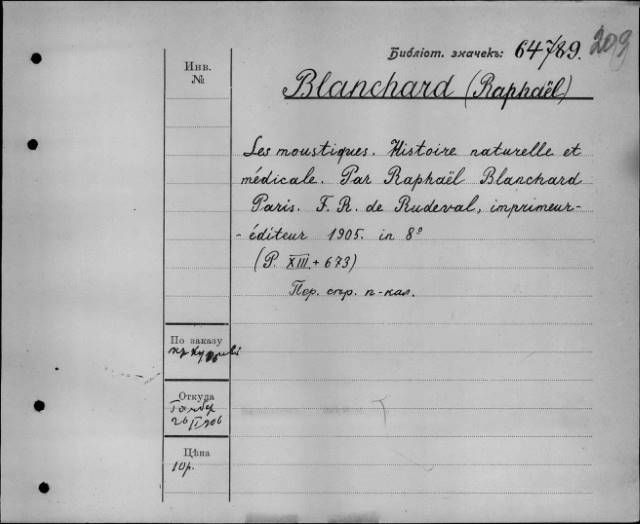 Библіот. значекъ: 647/89. 209
Инв.
№
Blanchard (Raphaël)
Les moustiques. Histoire naturelle et
médicale. Par Raphaël Blanchard
Paris. F. R. de Rudeval, imprimeur-
-éditeur 1905. in 8º
(P. XIII + 673)
Пер. спр. п-кал.
По заказу
Откуда
26 II 906
Цѣна
10р.